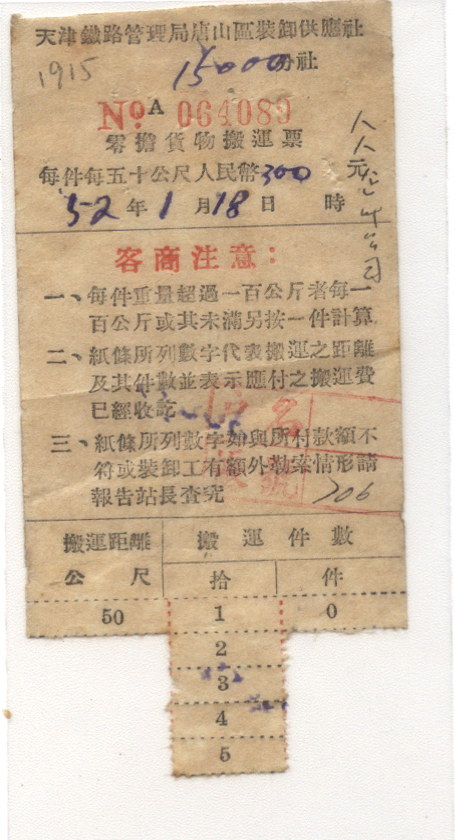 天津鐵路管理局唐山區裝卸供應社
1915
15000分社
No. A 064089
零擔貨物搬運票
每件每五十公尺人民幣300
52年1月18日 時
客商注意：
一、每件重量超過一百公斤者每一
百公斤或其未滿另按一件計算
二、紙條所列數字代表搬運之距離
及其件數並表示應付之搬運費
已經收訖
三、紙條所列數字如與所付款額不
符或裝卸工有額外勒索情形請
報告站長查究
706
搬運距離 搬運件數
公尺 拾 件
50 1 0
2
3
4
5